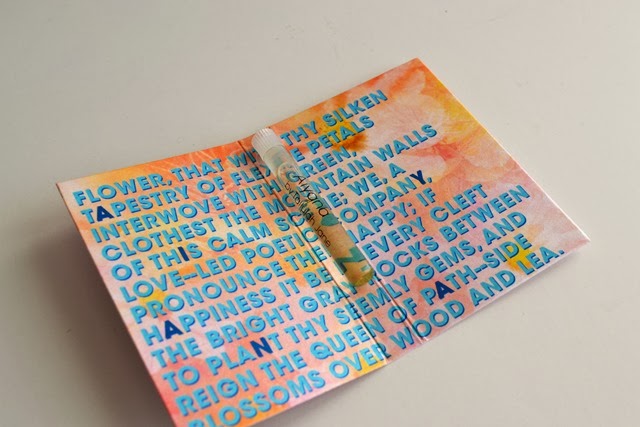 FLOWER, THAT THY SILKEN
TAPESTRY OF PETALS
INTERWOVE WITH
CLOTHEST THE WALLS
OF THIS CALM WE A
LOVE-LED COMPANY,
PRONOUNCE HAPPY; IF
HAPPINESS IT BE EVERY CLEFT
THE BRIGHT ROCKS BETWEEN
TO PLANT THY SEEMLY GEMS, AND
REIGN THE QUEEN OF PATH-SIDE
BLOSSOMS OVER WOOD AND LEA.
Aiyana
by Tallulah Jane